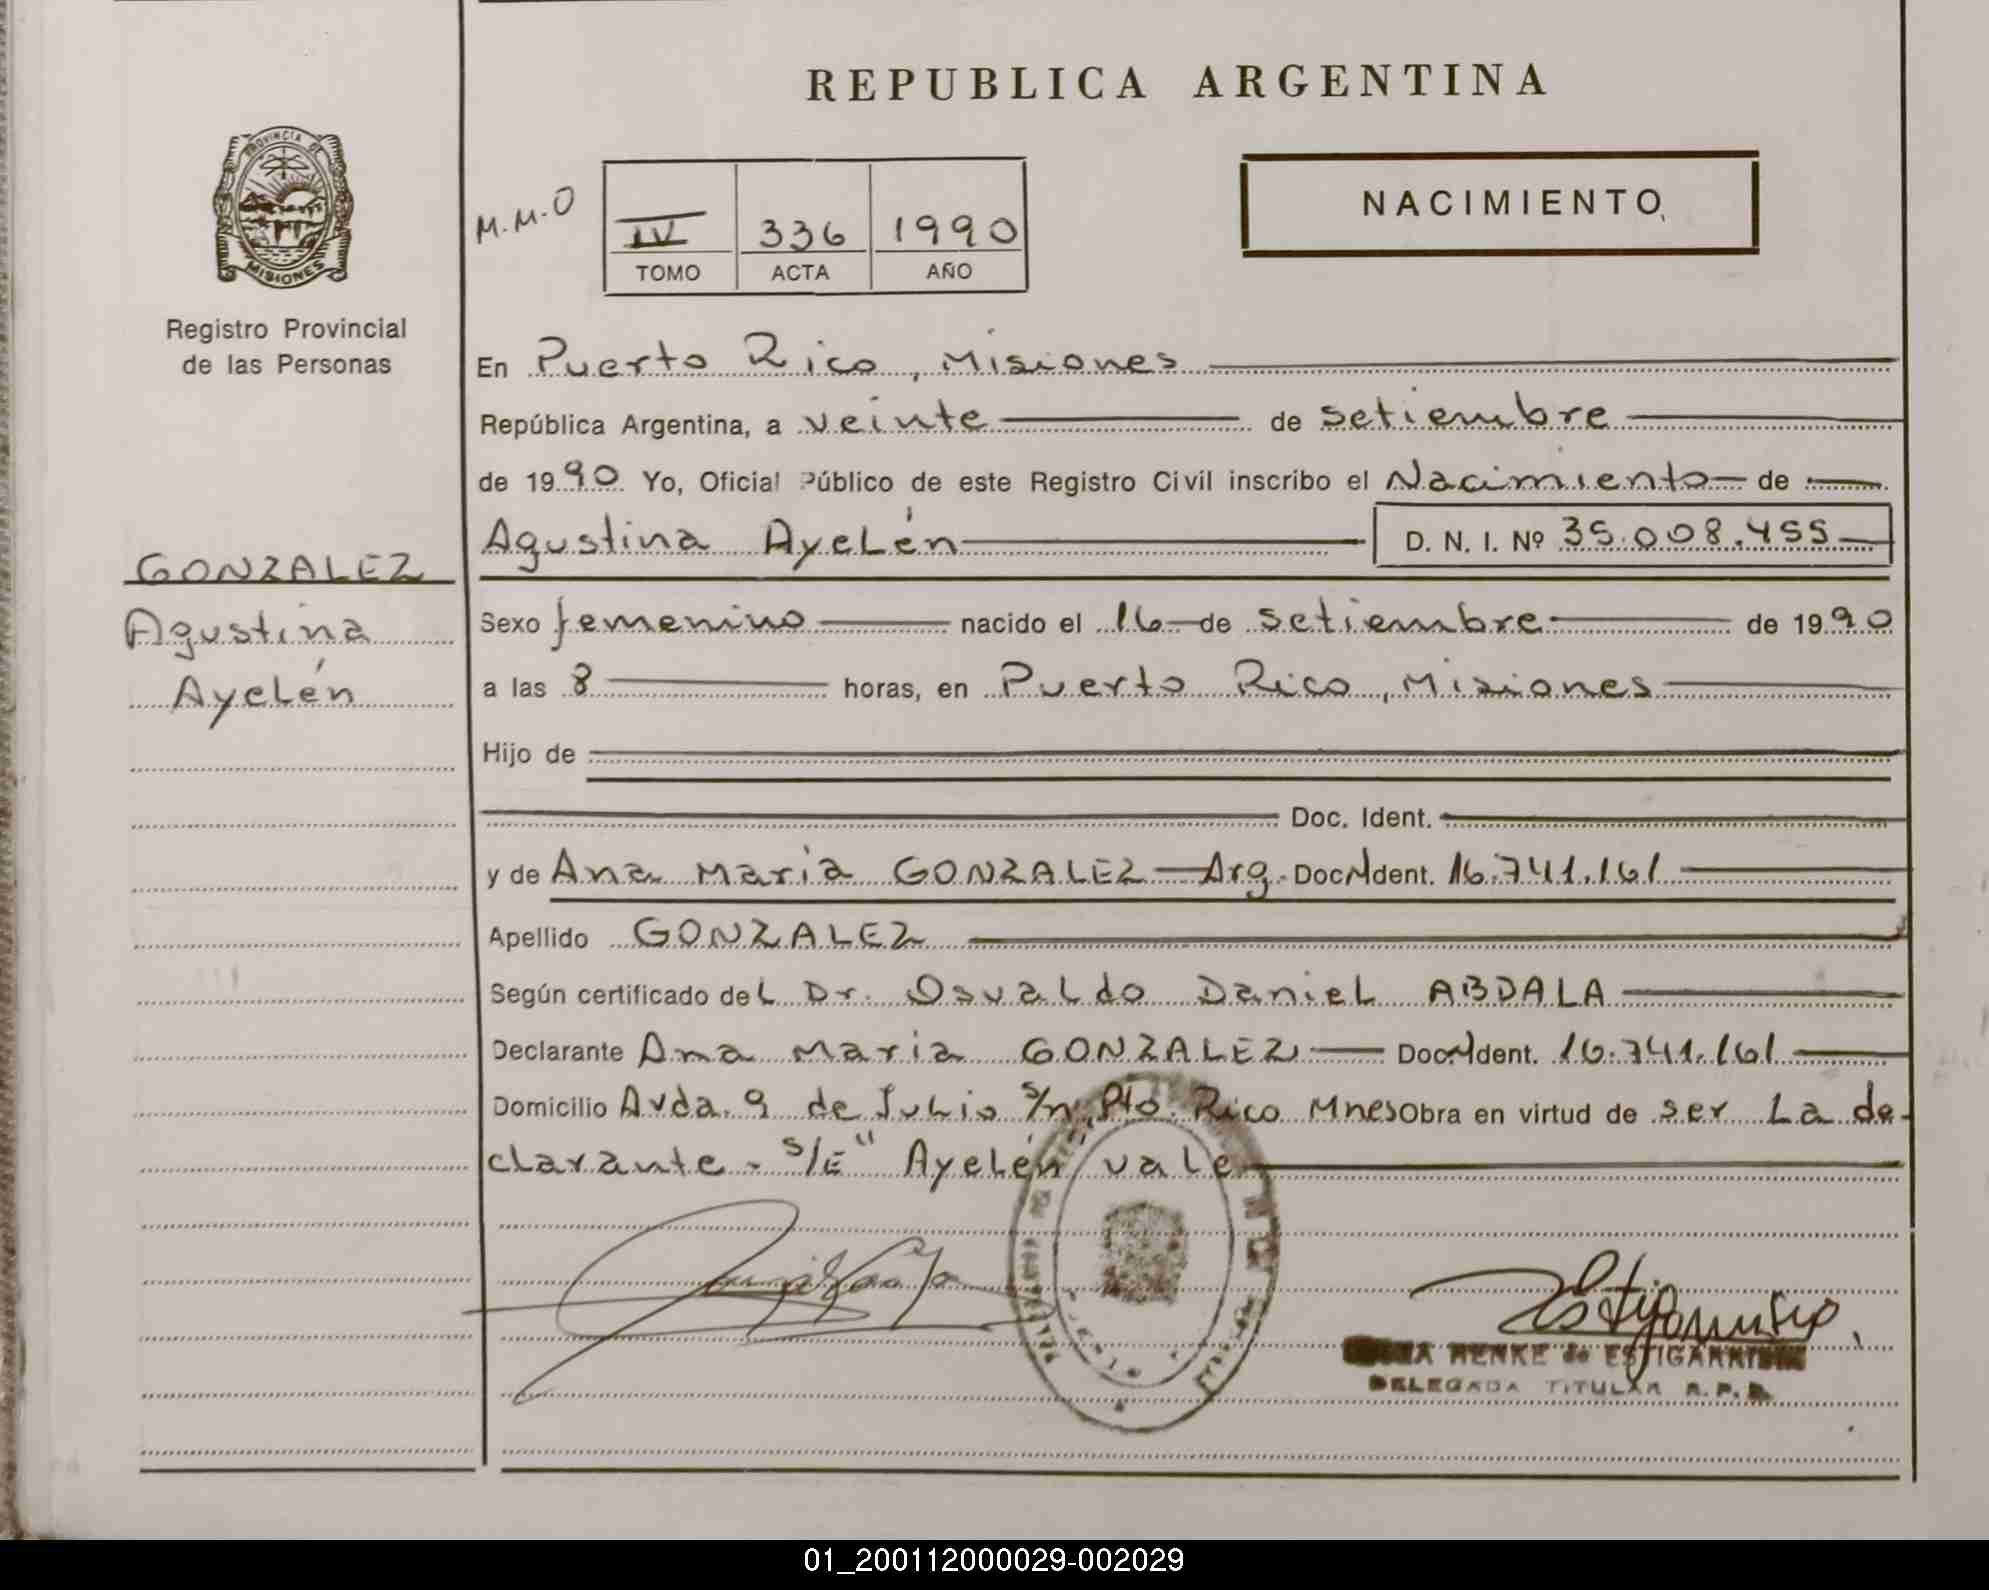 REPUBLICA ARGENTINA
PROVINCIA DE
MISIONES
Registro Provincial
de las Personas
M.M.O
IV 336 1990
TOMO ACTA AÑO
NACIMIENTO
En Puerto Rico, Misiones
República Argentina, a veinte de setiembre
de 1990 Yo, Oficial Público de este Registro Civil inscribo el Nacimiento de
Agustina Ayelén D. N. I. Nº 35.008.455
GONZALEZ
Agustina
Ayelén
Sexo femenino nacido el 16 de setiembre de 1990
a las 8 horas, en Puerto Rico, Misiones
Hijo de
Doc. Ident.
y de Ana María GONZALEZ Arg. Doc. Ident. 16.741.161
Apellido GONZALEZ
Según certificado del Dr. Osvaldo Daniel ABDALA
Declarante Ana Maria GONZALEZ Doc. Ident. 16.741.161
Domicilio Avda. 9 de Julio s/n, Pto. Rico Mnes Obra en virtud de ser La de-
clarante - S/E" Ayelén vale
HENKE de ESTIGARRIBIA
DELEGADA TITULAR R. P. P.
01_200112000029-002029